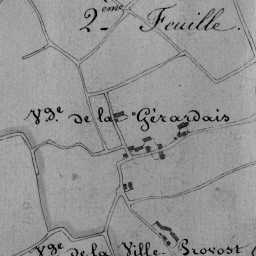 2.ème Feuille.
Vge de la Gérardais
Vge de la Ville Provost